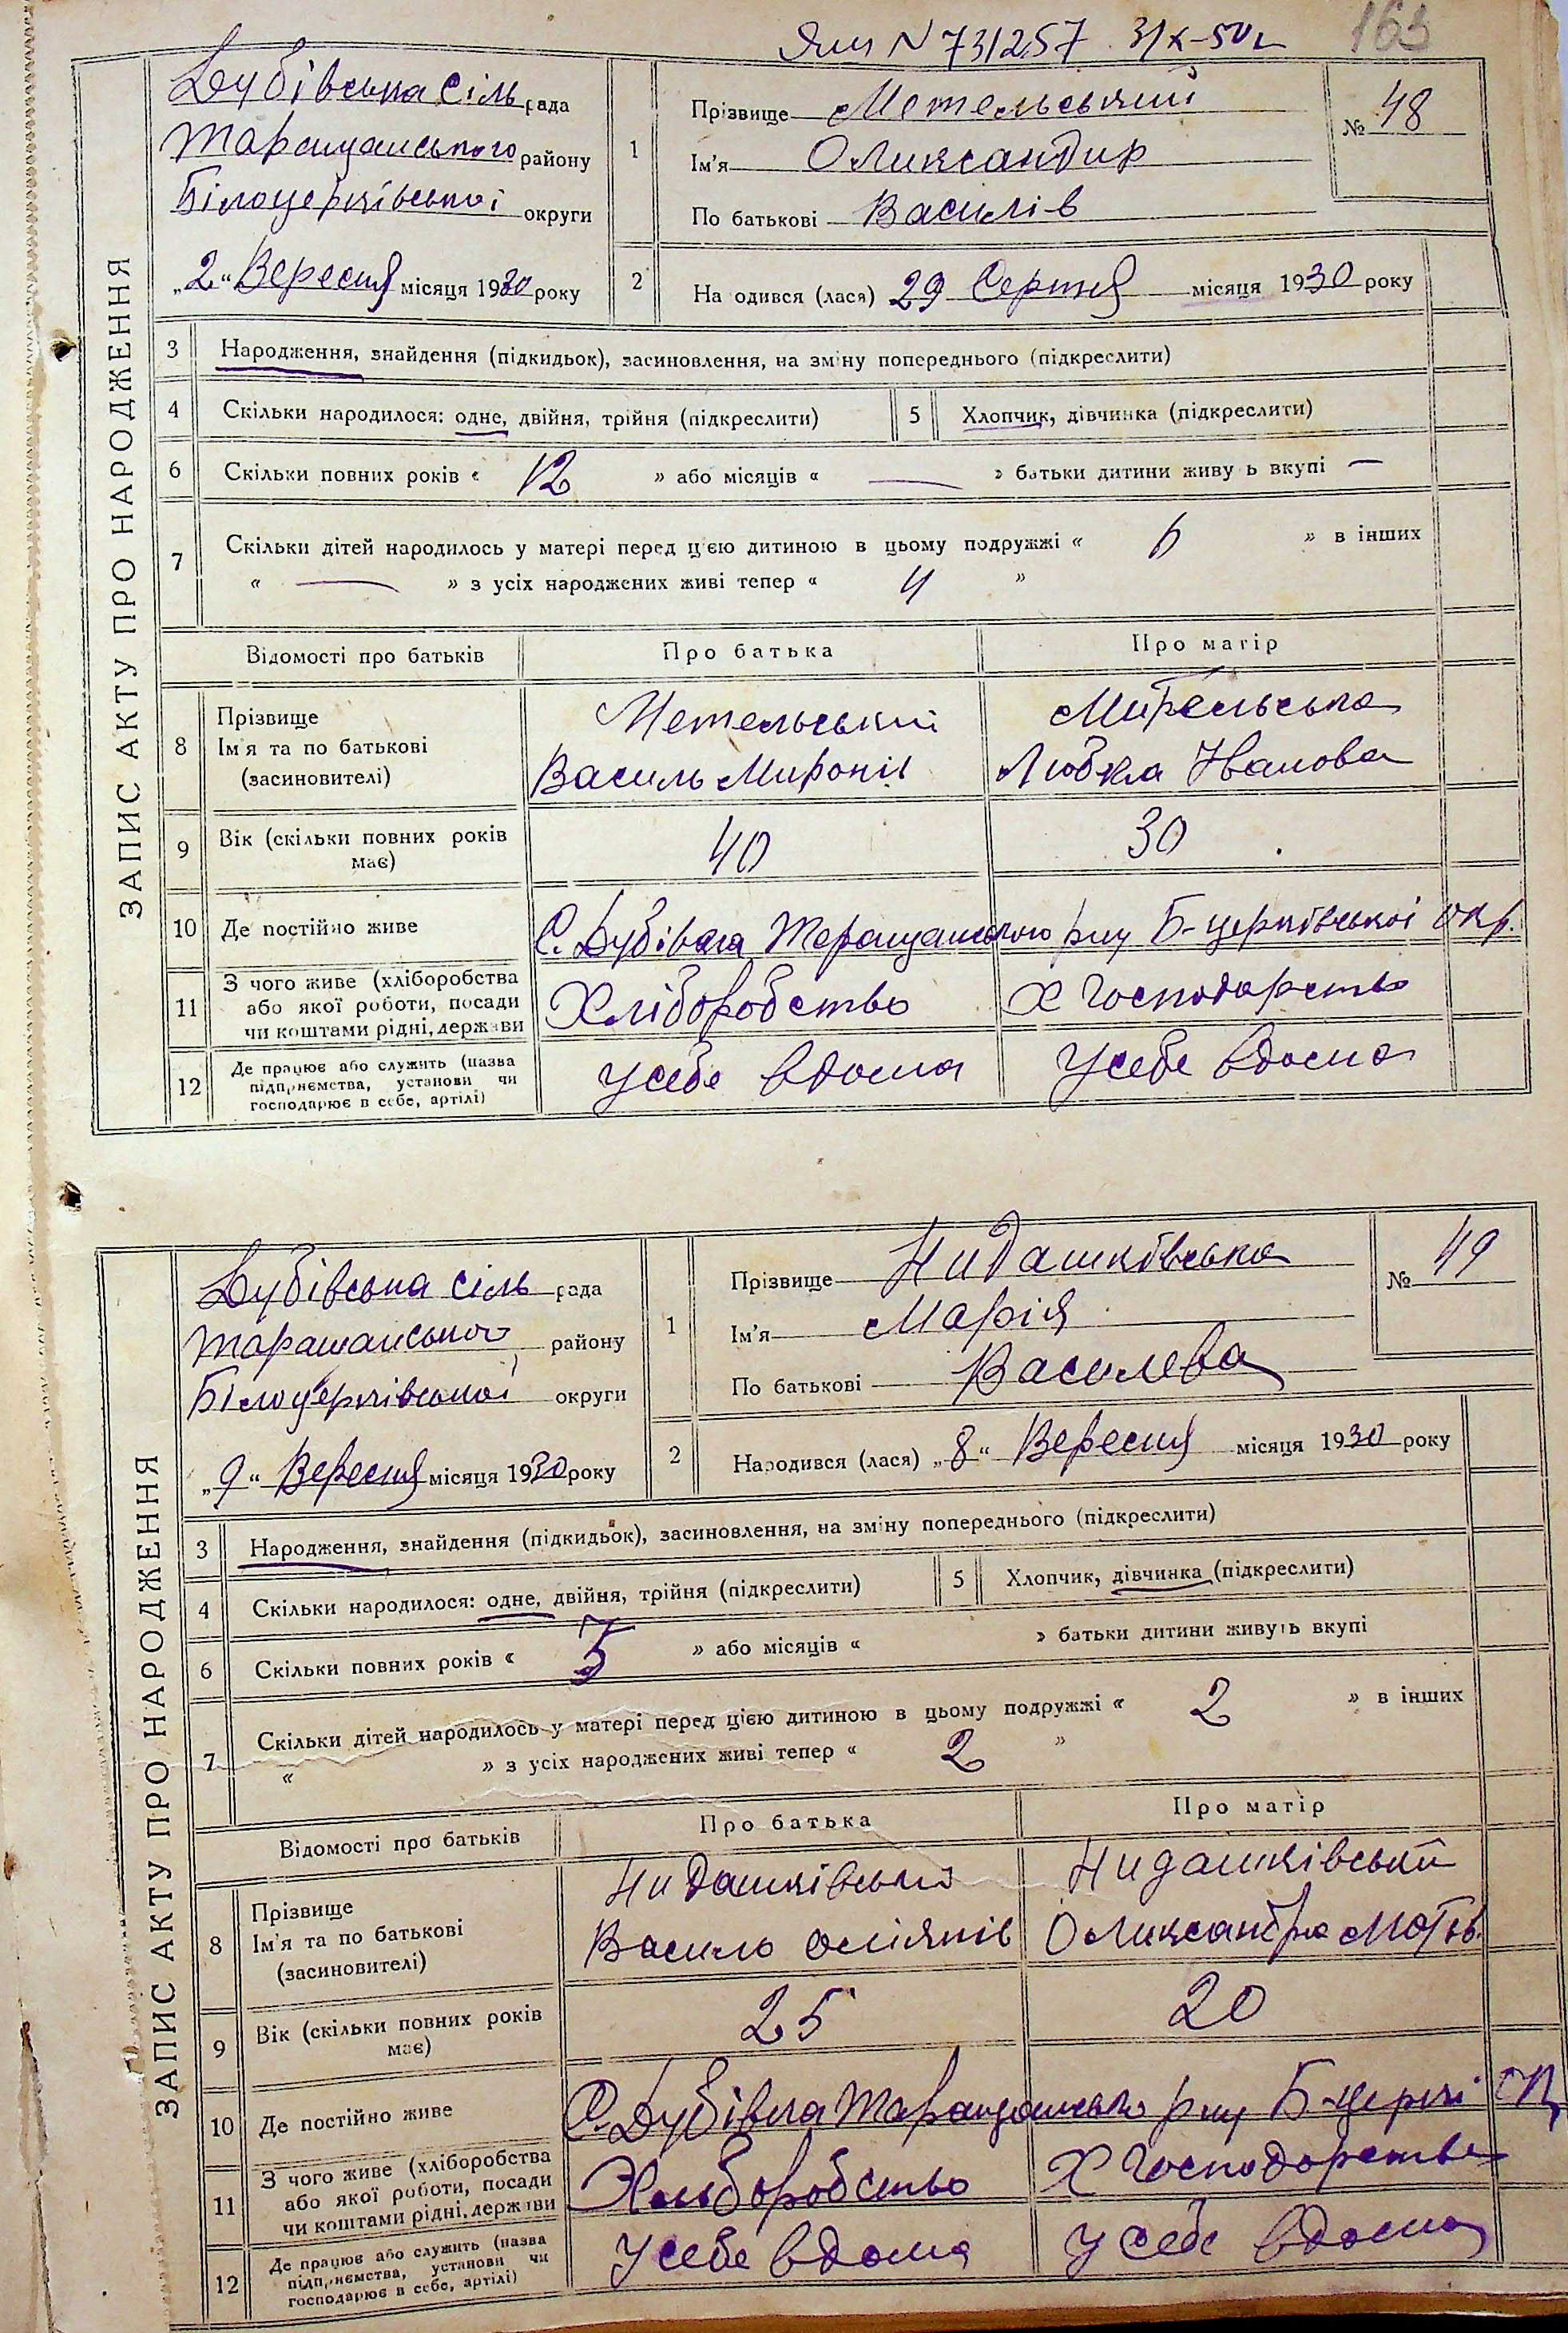 N 731257 31/X-50
163
ЗАПИС АКТУ ПРО НАРОДЖЕННЯ
Дубівська сіль рада
Таращанського району
Білоцерківської округи
„2“ Вересня місяця 1930 року
1
Прізвище Метельський
Ім'я Олександир
По батькові Василів
№ 48
2
На одився (лася) 29 Серпня місяця 1930 року
3 Народження, знайдення (підкидьок), засиновлення, на зміну попереднього (підкреслити)
4 Скільки народилося: одне, двійня, трійня (підкреслити) 5 Хлопчик, дівчинка (підкреслити)
6 Скільки повних років « 12 » або місяців « — » батьки дитини живу ь вкупі —
7 Скільки дітей народилось у матері перед цією дитиною в цьому подружжі « 6 » в інших
« — » з усіх народжених живі тепер « 4 »
Відомості про батьків Про батька Про матір
8 Прізвище Ім'я та по батькові (засиновителі)
Метельський Мительська
Василь Миронів Любка Иванова
9 Вік (скільки повних років має) 40 30
10 Де постійно живе С. Дубівка Таращанського р-ну Б-церківської окр.
11 З чого живе (хліборобства або якої роботи, посади чи коштами рідні, держави Хліборобство Х Господарство
12 Де працює або служить (назва підприємства, установи чи господарює в себе, артілі) У себе вдома У себе вдома
ЗАПИС АКТУ ПРО НАРОДЖЕННЯ
Дубівська сіль рада
Таращанського району
Білоцерківської округи
„9“ Вересня місяця 1930 року
1
Прізвище Нидашківська
Ім'я Марія
По батькові Василева
№ 49
2
Народився (лася) „8“ Вересня місяця 1930 року
3 Народження, знайдення (підкидьок), засиновлення, на зміну попереднього (підкреслити)
4 Скільки народилося: одне, двійня, трійня (підкреслити) 5 Хлопчик, дівчинка (підкреслити)
6 Скільки повних років « 5 » або місяців « » батьки дитини живуть вкупі
7 Скільки дітей народилось у матері перед цією дитиною в цьому подружжі « 2 » в інших
« » з усіх народжених живі тепер « 2 »
Відомості про батьків Про батька Про матір
8 Прізвище Ім'я та по батькові (засиновителі)
Нидашківський Нидашківський
Василь Олександра
9 Вік (скільки повних років має) 25 20
10 Де постійно живе С. Дубівка Таращанського р-ну Б-церкі
11 З чого живе (хліборобства або якої роботи, посади чи коштами рідні, держави Хльборобство Х Господарство
12 Де працює або служить (назва підприємства, установи чи господарює в себе, артілі) У себе вдома У себе вдома